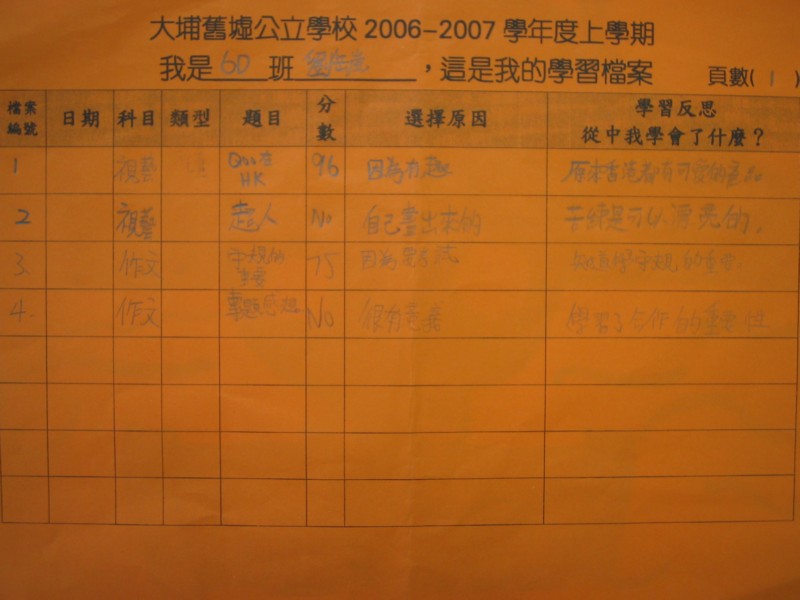 大埔舊墟公立學校 2006-2007 學年度上學期
我是 6D 班 ，這是我的學習檔案 頁數( 1 )
檔案編號 日期 科目 類型 題目 分數 選擇原因 學習反思 從中我學會了什麼？
1 視藝 在HK 96 因為有趣 原來香港都有可愛的
2 視藝 超人 No 自己畫出來的 是可以漂亮的。
3. 作文 守規的 75 因為 知道 守規的重要
4. 作文 專題感想 No 很有意義 學習了合作的重要性